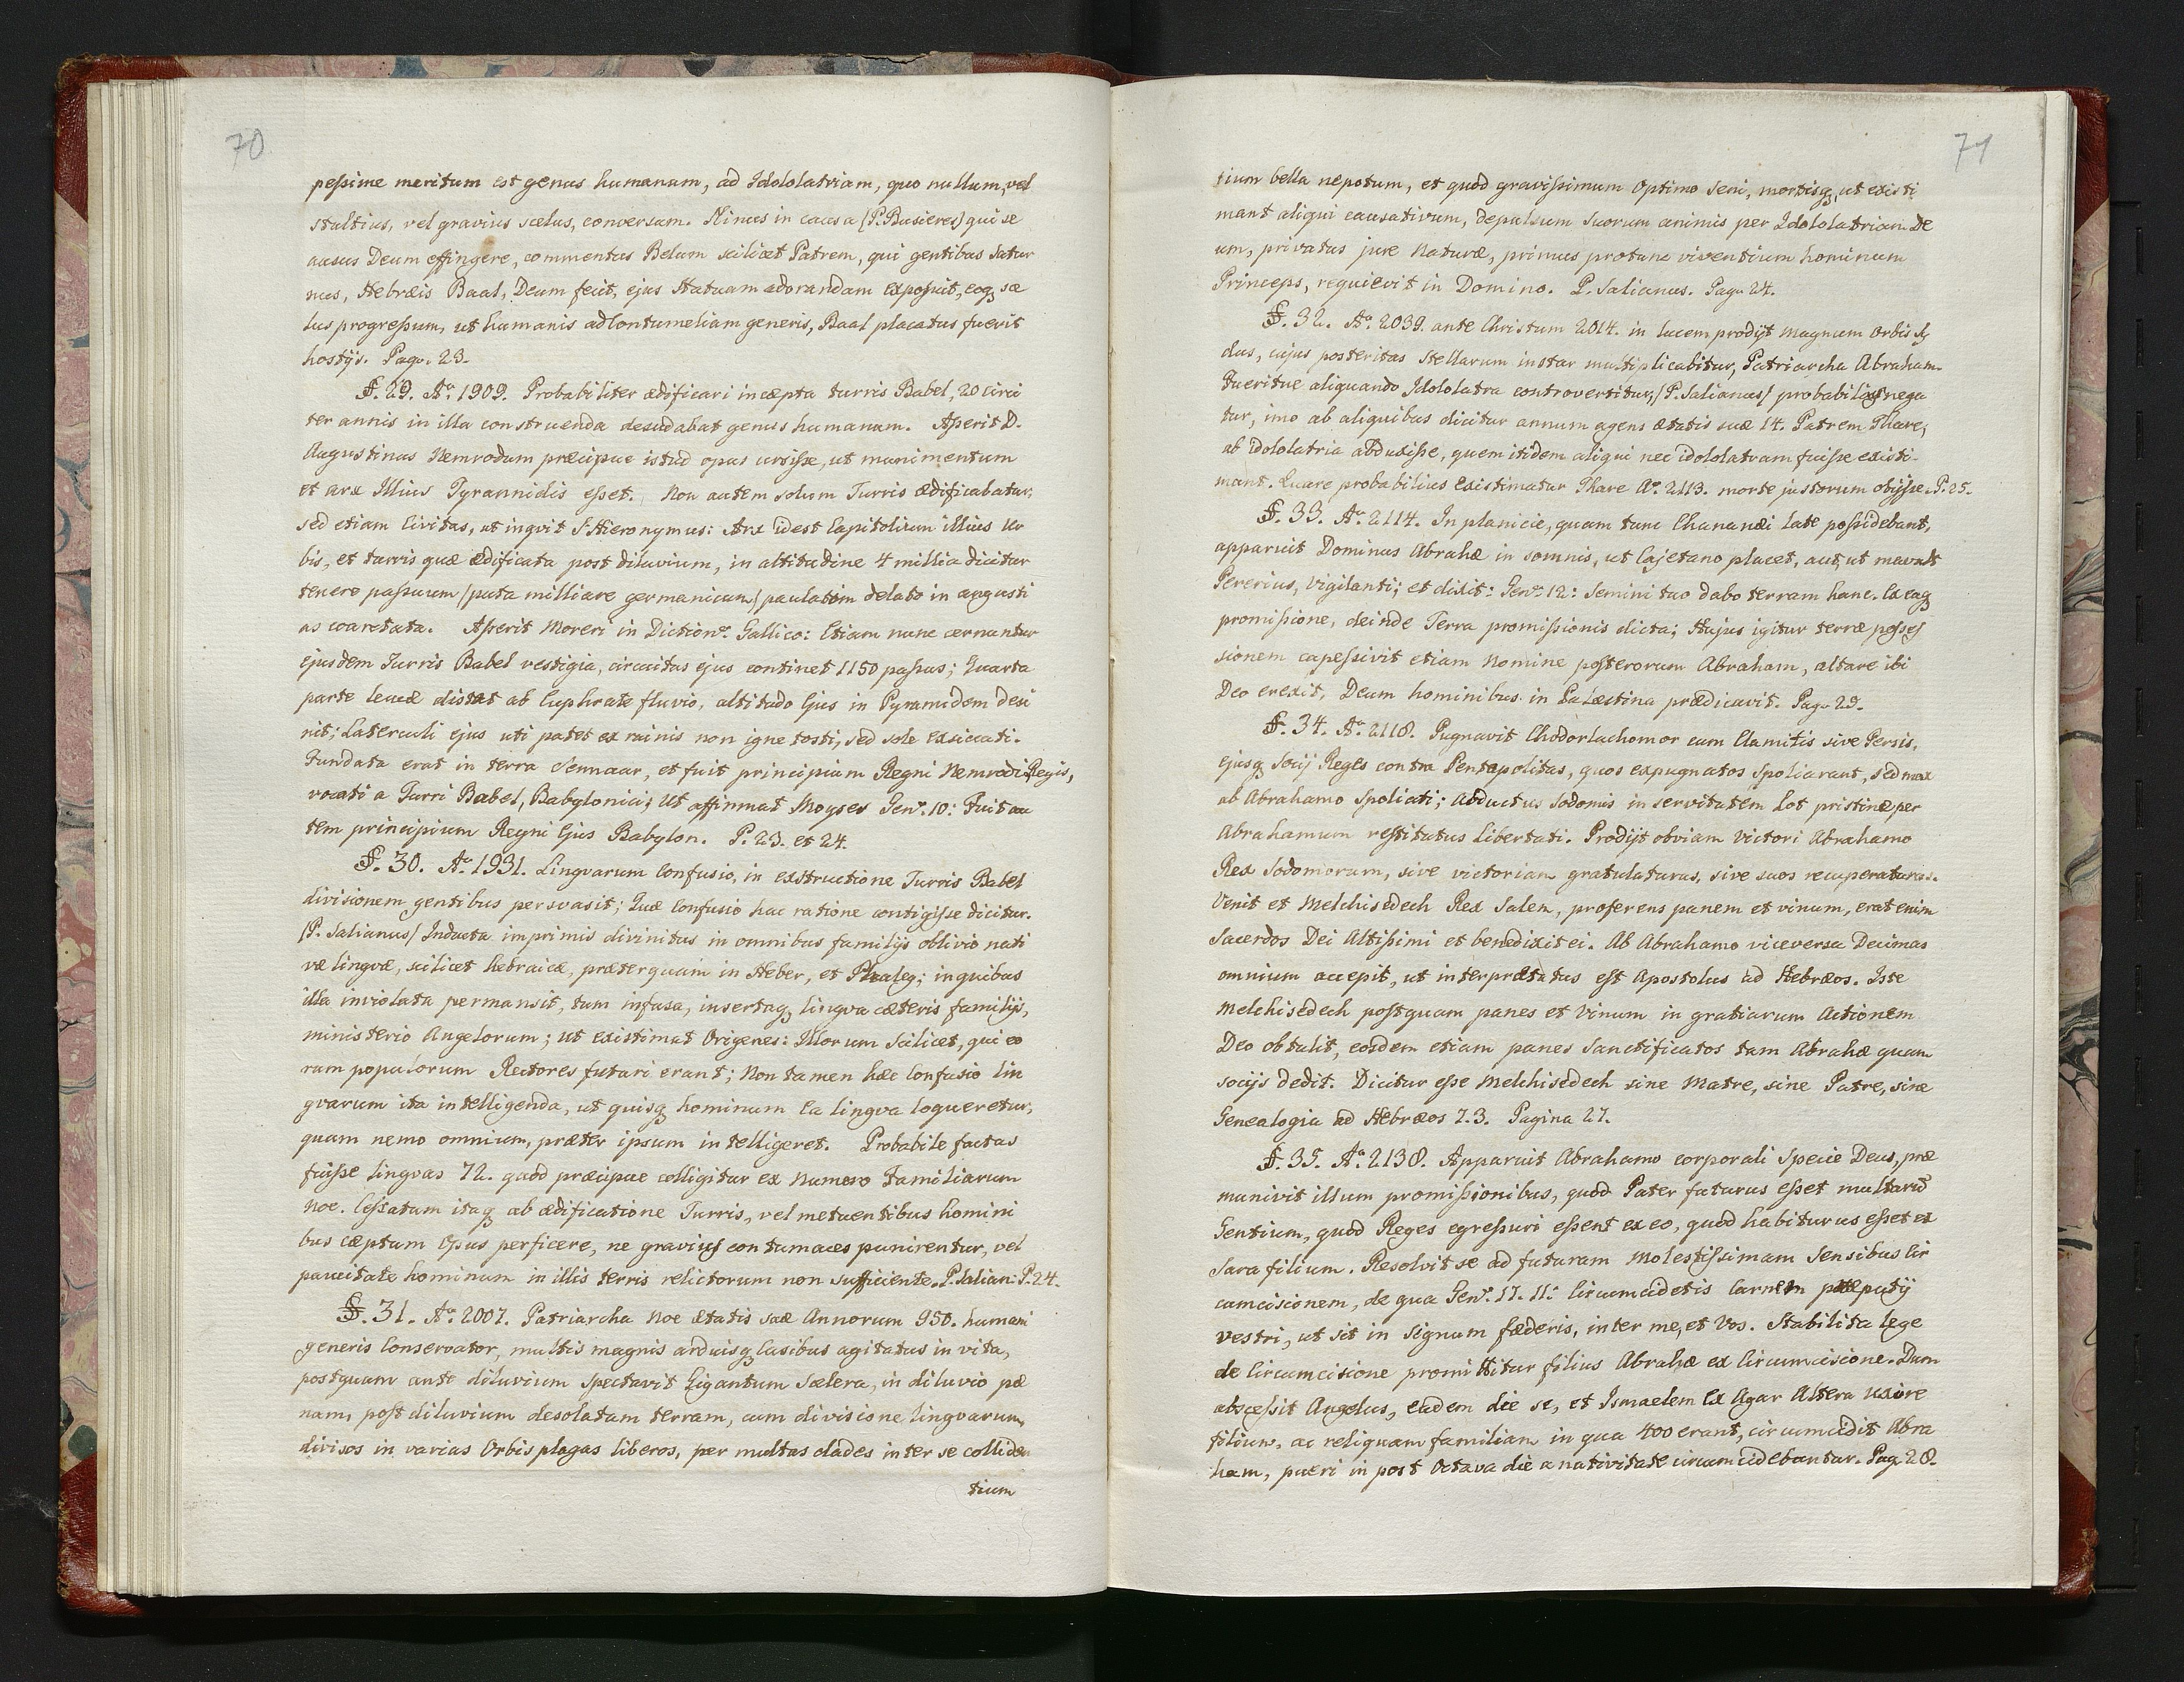 70
pessime meritum est genus humanum, ad Idololatriam, quo nullum, vel
stultius, vel gravius scelus, conversum. Ninus in causa (P. Busieres) qui se
ausus Deum effingere, commentus Belum scilicet Patrem, qui gentibus Satur
nus, Hebræis Baal, Deum fecit, ejus Statuam adorandam exposuit, eoq; sce
lus progressum, ut humanis ad Contumeliam generis, Baal placatus fuerit
hostijs. Pag. 23.
§. 29. Aº. 1909. Probabiliter ædificari incæpta turris Babel, 20 circi
ter annis in illa construenda desudabat genus humanum. Asserit D.
Augustinus Nemrodum præcipue istud opus ursisse, ut munimentum
et arx Illius Tyrannidis esset. Non autem solum Turris ædificabatur,
sed etiam Civitas, ut inqvit S. Hieronymus: Arx idest Capitolium illius Ur
bis, et turris quæ ædificata post diluvium, in altitudine 4 millia dicitur
tenere passuum (puta milliare germanicum) paulatim delato in angusti
as coarctata. Asserit Moreri in Diction. Gallico: Etiam nunc cernuntur
ejusdem Turris Babel vestigia, circuitus ejus continet 1150 passus; Quarta
parte leucæ distat ab Euphrate fluvio, altitudo Ejus in Pyramidem desi
nit; Laterculi ejus uti patet ex ruinis non igne tosti, sed sole exsiccati.
Fundata erat in terra Sennaar, et fuit principium Regni Nemrodi Regis,
vocati a Turri Babel, Babylonici; Ut affirmat Moyses Gen. 10: Fuit au
tem principium Regni Ejus Babylon. P. 23. et 24.
§. 30. Aº. 1931. Lingvarum Confusio, in exstructione Turris Babel
divisionem gentibus persvasit; Quæ Confusio hac ratione contigisse dicitur.
(P. Salianus) Inducta imprimis divinitus in omnibus familijs oblivio nati
væ lingvæ, scilicet hebraicæ, præterquam in Heber, et Phaleg; in quibus
illa inviolata permansit, tum infusa, insertaq; lingva cæteris familijs,
ministerio Angelorum; ut existimat Origenes: Illorum scilicet, qui eo
rum populorum Rectores futuri erant; Non tamen hæc Confusio lin
gvarum ita intelligenda, ut quisq; hominum Ea lingva loqueretur,
quam nemo omnium, præter ipsum intelligeret. Probabile factas
fuisse lingvas 72. quod præcipue colligitur ex Numero Familiarum
Noe. Cessatum itaq; ab ædificatione Turris, vel metuentibus homini
bus cæptum Opus perficere, ne gravius contumaces punirentur, vel
paucitate hominum in illis terris relictorum non sufficiente. P. Salian: P. 24.
§. 31. Aº. 2007. Patriarcha Noe ætatis suæ Annorum 950. humani
generis Conservator, multis magnis arduisq; Casibus agitatus in vita,
postquam ante diluvium spectavit Gigantum Scelera, in diluvio pæ
nam, post diluvium desolatam terram, cum divisione lingvarum,
divisos in varias Orbis plagas liberos, per multas clades inter se colliden
tium
71
tium bella nepotum, et quod gravissimum Optimo Seni, mortisq; ut existi
mant aliqui causativum, depulsum Suorum animis per Idololatriam De
um, privatus jure Naturæ, primus protune viventium hominum
Princeps, requievit in Domino. P. Salianus. Pag. 24.
§. 32. Aº. 2039. ante Christum 2014. in lucem prodijt magnum Orbis sy
dus, cujus posteritas Stellarum instar multiplicabitur, Patriarcha Abraham.
Fueritne aliquando Idololatra controvertitur, (P. Salianus) probabilius nega
tur, imo ab aliquibus dicitur annum agens ætatis suæ 14. Patrem Thare,
ab idololatria abduxisse, quem itidem aliqui nec idololatram fuisse existi-
mant. Quare probabilius Existimatur Thare Aº. 2113. morte justorum obijsse. P. 25.
§. 33. Aº. 2114. In planicie, quam tunc Chananæi late possidebant,
apparuit Dominus Abrahæ in somnis, ut Cajetano placet, aut, ut mavult
Pererius, vigilanti; et dixit: Gen: 12: Semini tuo dabo terram hanc. Ex eaq;
promissione, deinde Terra promissionis dicta; Hujus igitur terræ posses
sionem capessivit etiam Nomine posterorum Abraham, altare ibi
Deo erexit, Deum hominibus in Palæstina prædicavit. Pag. 29.
§. 34. Aº. 2118. Pugnavit Chodorlachomor cum Elamitis sive Persis,
Ejusq; socij Reges contra Pentapolitas, quos expugnatos spoliarunt, sed mox
ab Abrahamo Spoliati; abductus Sodomis in servitutem Lot pristinæ per
Abrahamum restitutus libertati. Prodijt obviam victori Abrahamo
Rex Sodomorum, sive victoriam gratulaturus, sive suos recuperaturus.
Venit et Melchisedech Rex Salem, proferens panem et vinum, erat enim
Sacerdos Dei Altissimi et benedixit ei. Ab Abrahamo viceversa Decimas
omnium accepit, ut interprætatus est Apostolus ad Hebræos. Iste
Melchisedech postquam panes et Vinum in gratiarum Actionem
Deo obtulit, eosdem etiam panes Sanctificatos tam Abrahæ quam
socijs dedit. Dicitur esse Melchisedech sine Matre, sine Patre, sine
Genealogia ad Hebræos 7.3. Pagina 27.
§. 35. Aº. 2138. Apparuit Abrahamo corporali specie Deus, præ
munivit illum promissionibus, quod Pater futurus esset multarū
Gentium, quod Reges egressuri essent ex eo, quod habiturus esset ex
Sara filium. Resolvit se ad futuram Molestissimam Sensibus Cir
cumcisionem, de qua Gen. 17. 11: Circumcidetis Carnem præputij
vestri, ut sit in signum fæderis, inter me, et Vos. Stabilita lege
de Circumcisione promittitur filius Abrahæ ex Circumcisione. Dum
abscessit Angelus, eadem die se, et Ismaelem Ex Agar Altera uxore
filium, ac reliquam familiam in qua 400 erant, circumcidit Abra
ham, pueri in post Octava die a nativitate circumcidebantur. Pag. 28.